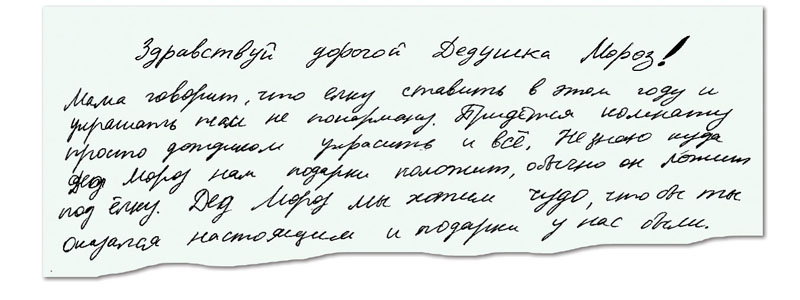 Здравствуй дорогой Дедушка Мороз!
Мама говорит, что елку ставить в этом году и
украшать нам не покарману. Придётся комнату
просто дождиком украсить и всё. Незнаю куда
Дед Мороз нам подарки положит, обычно он ложит
под ёлку. Дед Мороз мы хотим чудо, что бы ты
оказался настоящим и подарки у нас были.